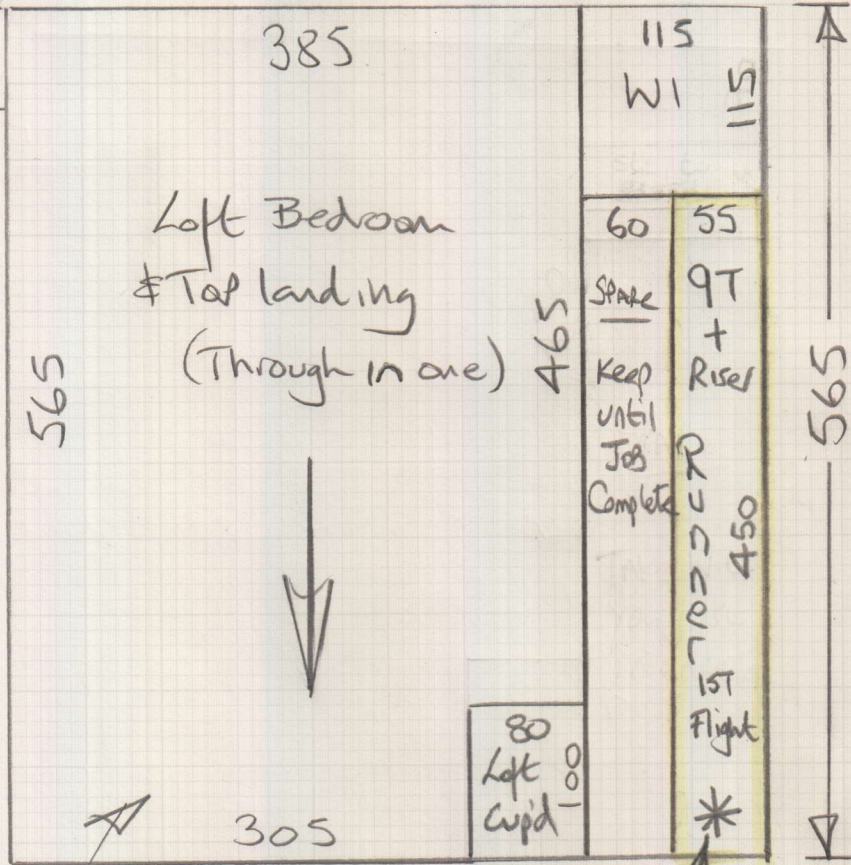 385
115
W1
115
Loft Bedroom
& Top landing
(Through in one)
565
465
60
SPARE
Keep
until
Job
Complete
55
9T
+
Riser
Runner
450
1ST
Flight
*
565
80
Loft
Cup'd
100
305